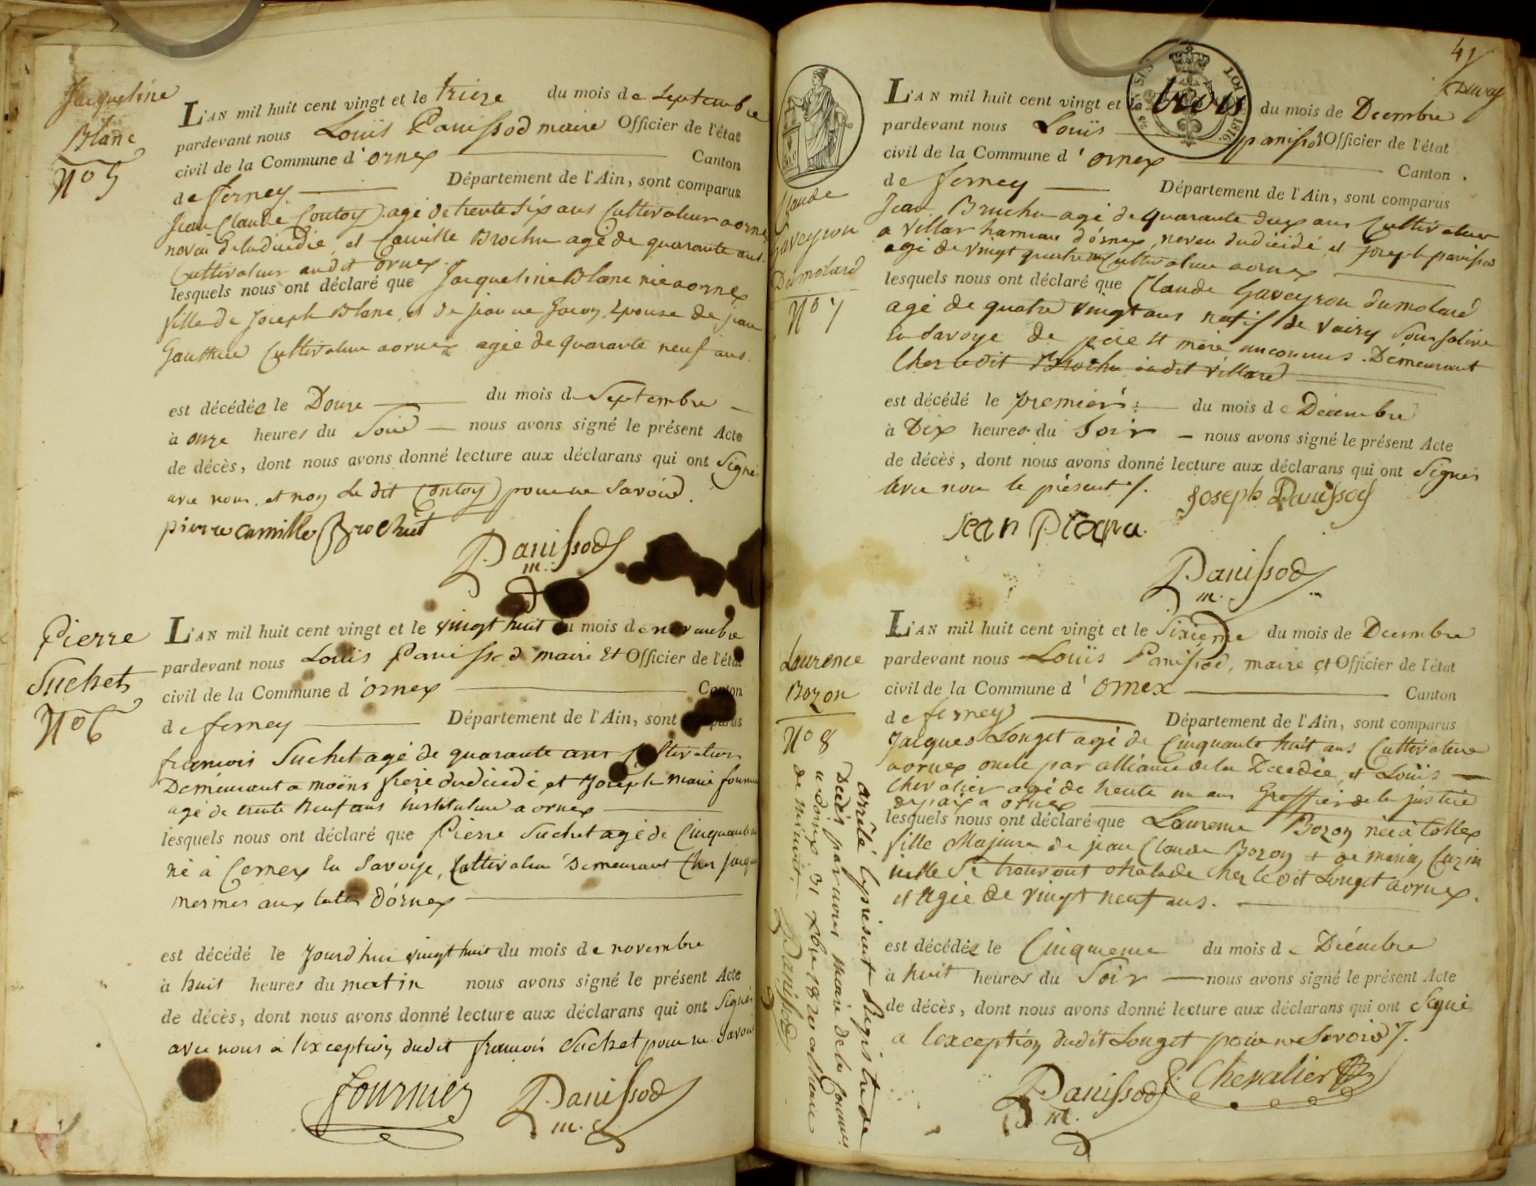 Jacqueline
Blanc
N° 5
L'AN mil huit cent vingt et le treize du mois de Septembre
pardevant nous Louïs Panissod maire Officier de l'état
civil de la Commune d'ornex Canton
de ferney. Département de l'Ain, sont comparus
Jean Claude Contoy agé de trente six ans Cultivateur a ornex
neveu de la ducédé, et Camille Brochu agé de quarante ans
Cultivateur audit Ornex.
lesquels nous ont déclaré que Jacqueline Blanc née a ornex
fille de Joseph Blanc, et de jeanne Epouse de jean
Gauthier Cultivateur a ornex agée de quarante neuf ans.
est décédée le Douze du mois de Septembre
à onze heures du Soir nous avons signé le présent Acte
de décès, dont nous avons donné lecture aux déclarans qui ont Signé
avec nous et non Le dit Contoy pour ne Savoir.
pierre camille Brochut
Panissod
m.
Pierre
Suchet
N° 6
L'AN mil huit cent vingt et le vingt huit du mois de novembre
pardevant nous Louïs Panissod maire Et Officier de l'état
civil de la Commune d'ornex Canton
de ferney Département de l'Ain, sont comparus
francois Suchet agé de quarante ans Cultivateur
Demeurant a moëns frere du décédé, et Joseph Marie fournier
agé de trente neuf ans instituteur a ornex
lesquels nous ont déclaré que Pierre Suchet agé de Cinquante
né à Cernex en Savoye, Cultivateur Demeurant Chez Jacques
mermet aux d'ornex
est décédé le Jourd'hui vingt huit du mois de novembre
à huit heures du matin nous avons signé le présent Acte
de décès, dont nous avons donné lecture aux déclarans qui ont Signé
avec nous à l'exception dudit francois Suchet pour ne Savoir
fournier
Panissod
m.
41
Claude
Gaveyron
Dumolard
N° 7
L'AN mil huit cent vingt et le trois du mois de Decembre
pardevant nous Louïs panissod Officier de l'état
civil de la Commune d'ornex Canton
de ferney Département de l'Ain, sont comparus
Jean Bruchu agé de quarante deux ans Cultivateur
a villar hameau d'ornex, neveu du décédé, et Joseph panissod
agé de vingt quatre ans Cultivateur a ornex
lesquels nous ont déclaré que Claude Gaveyron dumolard
agé de quatre vingt ans natif de vairy Sous Salive
en Savoye de père et mere inconnus. Demeurant
Chez le dit Brochu audit villard
est décédé le premier du mois de Décembre
à Dix heures du Soir nous avons signé le présent Acte
de décès, dont nous avons donné lecture aux déclarans qui ont Signés
avec nous le présent.
Joseph Panissod
Jean
Panissod
m.
Laurence
Bozon
N° 8
L'AN mil huit cent vingt et le Sixieme du mois de Decembre
pardevant nous Louïs Panissod, maire et Officier de l'état
civil de la Commune d'ornex Canton
de ferney Département de l'Ain, sont comparus
Jacques Longet agé de Cinquante huit ans Cultivateur
a ornex oncle par alliance de la Decedée, et Louïs
Chevalier agé de trente un ans Greffier de la justice
de paix a ornex
lesquels nous ont déclaré que Laurence Bozon née à Collex
fille Majeure de jean Claude Bozon et de
Se trouvant Malade Chez le dit Longet a ornex.
et agée de vingt neuf ans.
est décédée le Cinquieme du mois de Décembre
à huit heures du Soir nous avons signé le présent Acte
de décès, dont nous avons donné lecture aux déclarans qui ont Signé
a l'exception dudit Longet pour ne Savoir.
Panissod
m.
Chevalier
arrêté le présent Registre de
Decès par nous maire de la Commune
d'ornex 31 Xbre 1820 a l'heure
de minuit
Panissod